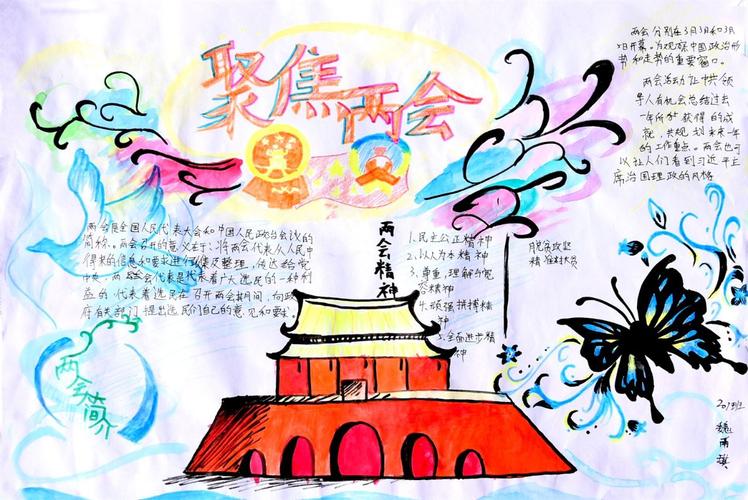 聚焦两会
两会分别在3月3和3月
日开幕。为观察中国政治形
势和走势的重要窗口。
两会活动让中共领
导人有机会总结过去
一年所获得的成
就，共规划未来一年
的工作重点。两会也可
以让人们看到习近平主
席治国理政的风格
两会是全国人民代表大会和中国人民政治会议的
简称。两会召开的意义在于：将两会代表从人民中
得来的信息和要求进行收集及整理，传达给党
中央，两会代表是代表着广大选民的一种利
益的，代表着选民在召开两会期间，向政
府有关部门提出选民们自己的意见和要求。
两会精神
1、民主公正精神
2、以人为本精神
3、尊重，理解与宽
容精神
4、顽强拼搏精
神
5、全面进步精
神
脱贫攻坚
精准扶贫
两会简介